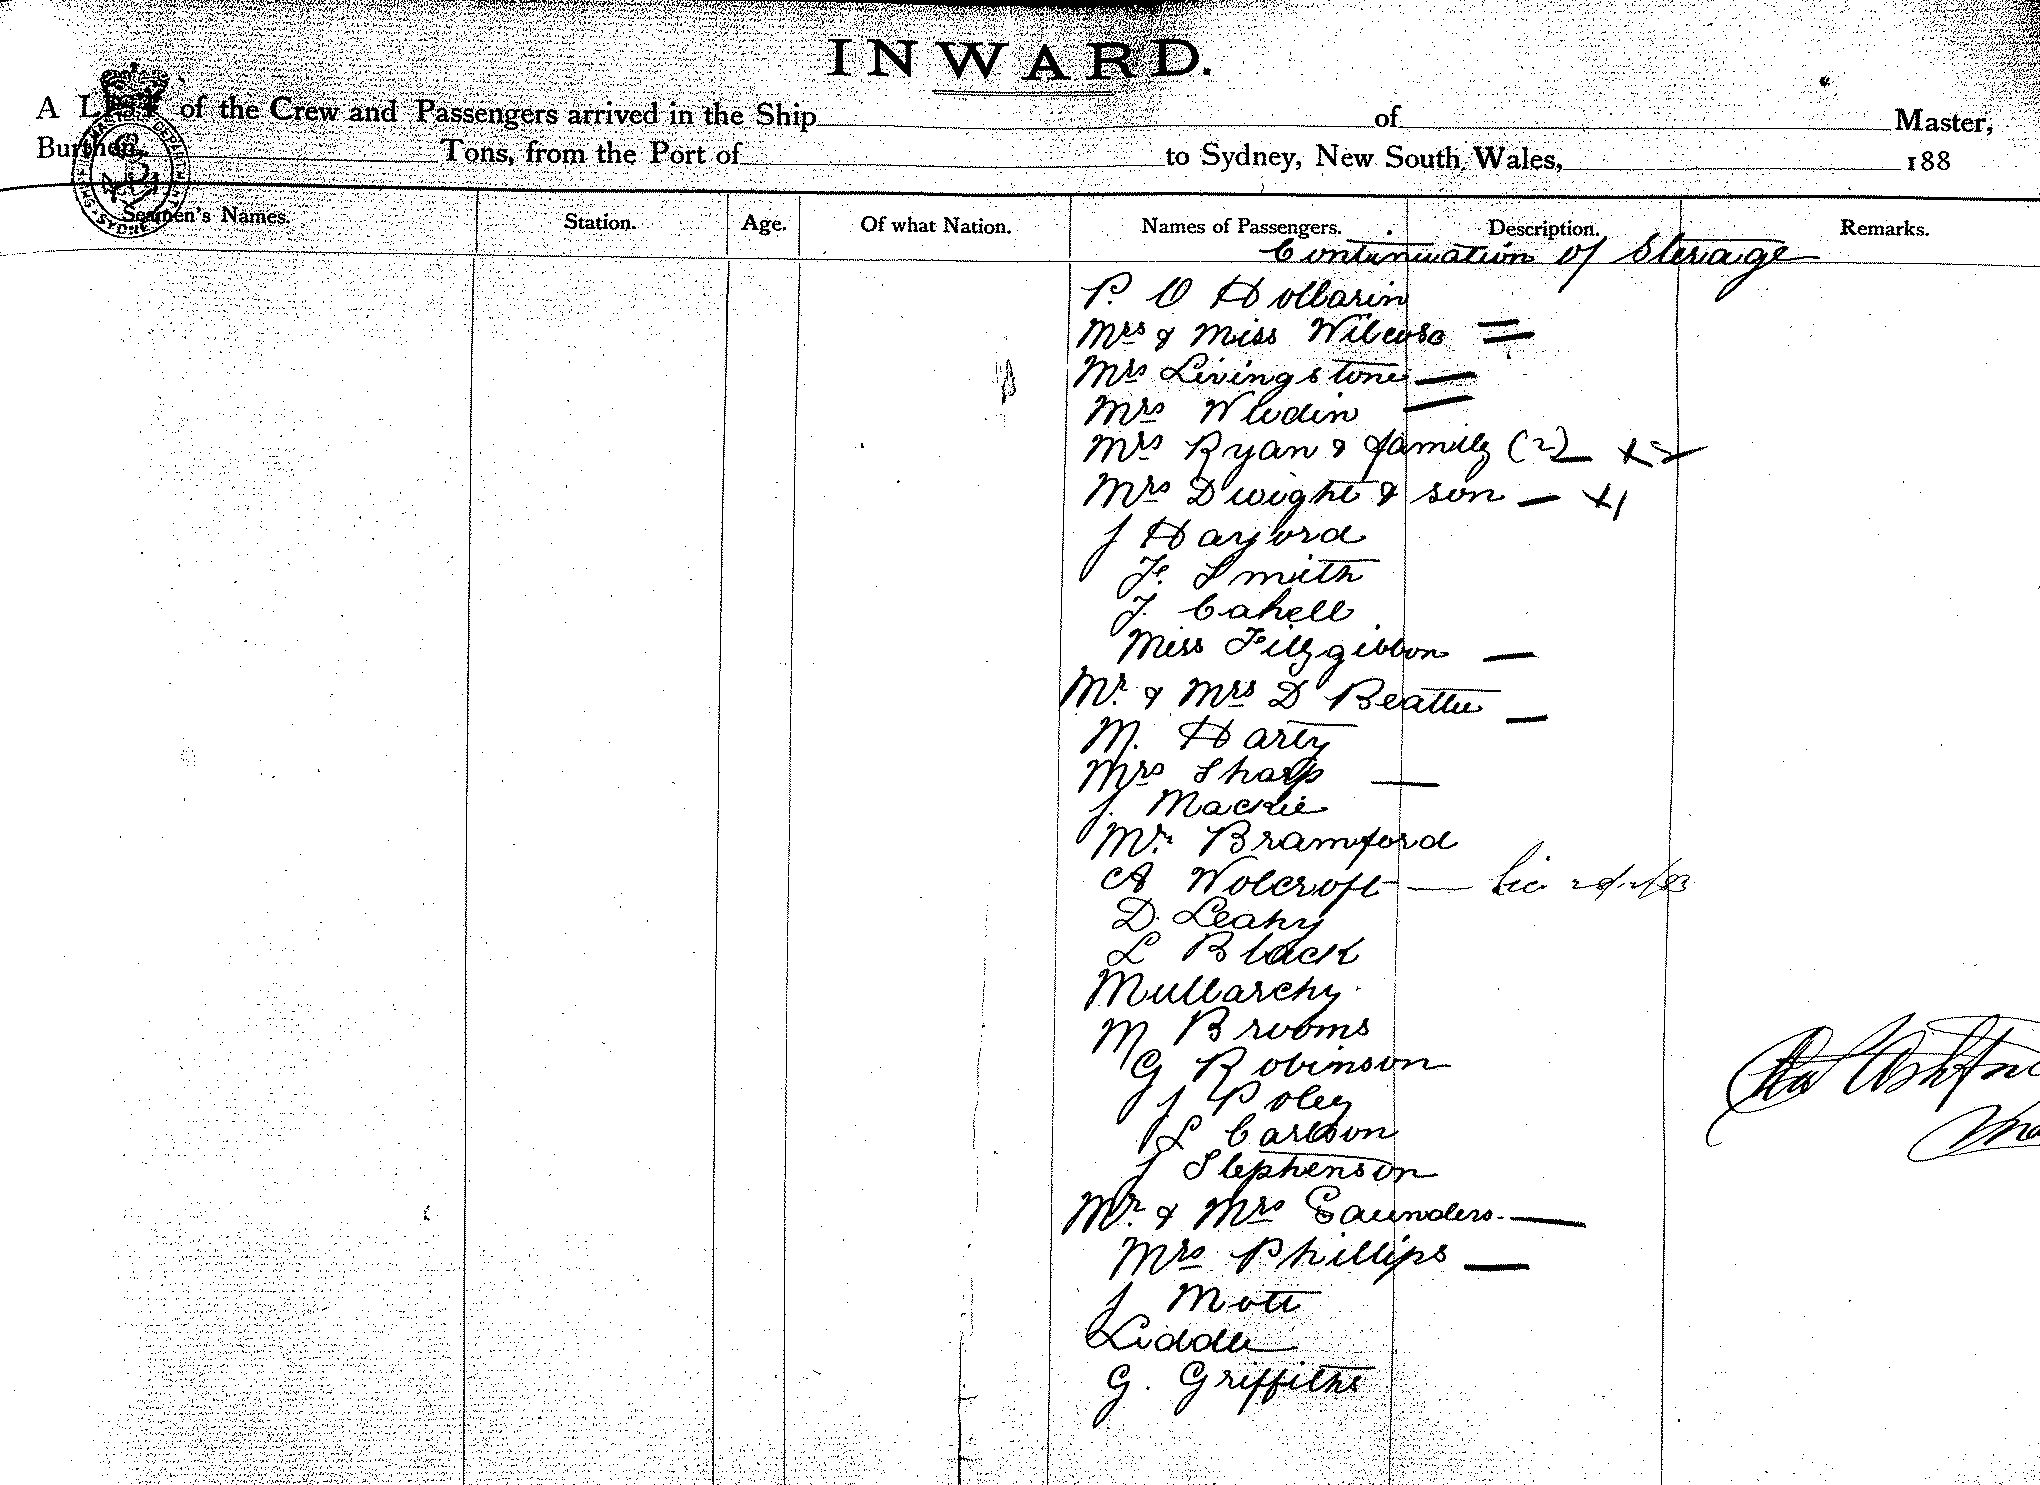 INWARD.
A LIST of the Crew and Passengers arrived in the Ship of Master,
Burthen, Tons, from the Port of to Sydney, New South Wales, 188
Seamen's Names. Station. Age. Of what Nation. Names of Passengers. Description. Remarks.
Continuation of Sterage
P. O Hollarin
Mrs & Miss Wilcose
Mrs Livingstone
Mrs
Mrs Ryan & family (2) x2
Mrs Dwight & son x1
J Hayford
F. Smith
J. Cahell
Miss Fitzgibbon
Mr. & Mrs D Beattie
M. Harty
Mrs Sharp
J. Mackie
Mr. Bramford
A Wolcroft
D. Leahy
L Black
Mullarchy
M Brooms
G Robinson
J Poley
L Carlson
J Stephenson
Mr. & Mrs Saunders
Mrs Phillips
J Mott
Liddle
G. Griffiths